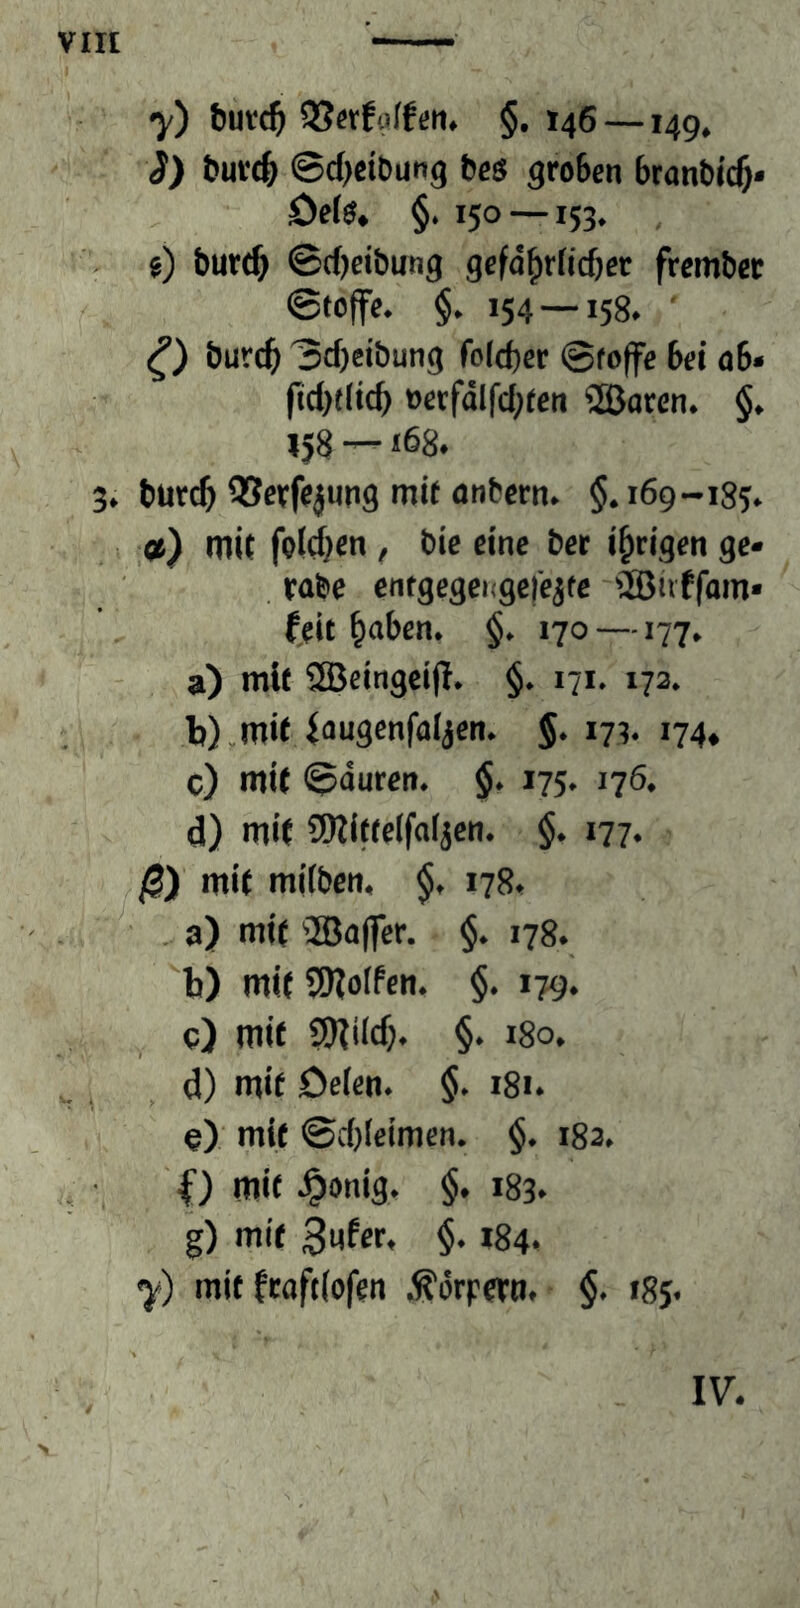 VIII
γ) durch Verkolken. §. 146—149.
δ) durch Scheidung des groben brandich-
Oels. §. 150—153.
ε) durch Scheidung gefährlicher fremder
Stoffe. §. 154—158.
ζ) durch Scheidung solcher Stoffe bei ab-
sichtlich verfälschten Waren. §.
158—168.
3. durch Versezung mit andern. §. 169-185.
α) mit solchen, die eine der ihrigen ge-
rade entgegengesezte Wirksam-
keit haben. §. 170—177.
a) mit Weingeist. §. 171. 172.
b) mit Laugensalzen. §. 173. 174.
c) mit Säuren. §. 175. 176.
d) mit Mittelsalzen. §. 177.
β) mit milden. §. 178.
a) mit Wasser. §. 178.
b) mit Molken. §. 179.
c) mit Milch. §. 180.
d) mit Oelen. §. 181.
e) mit Schleimen. §. 182.
f) mit Honig. §. 183.
g) mit Zuker. §. 184.
γ) mit kraftlosen Körpern. §. 185.
IV.